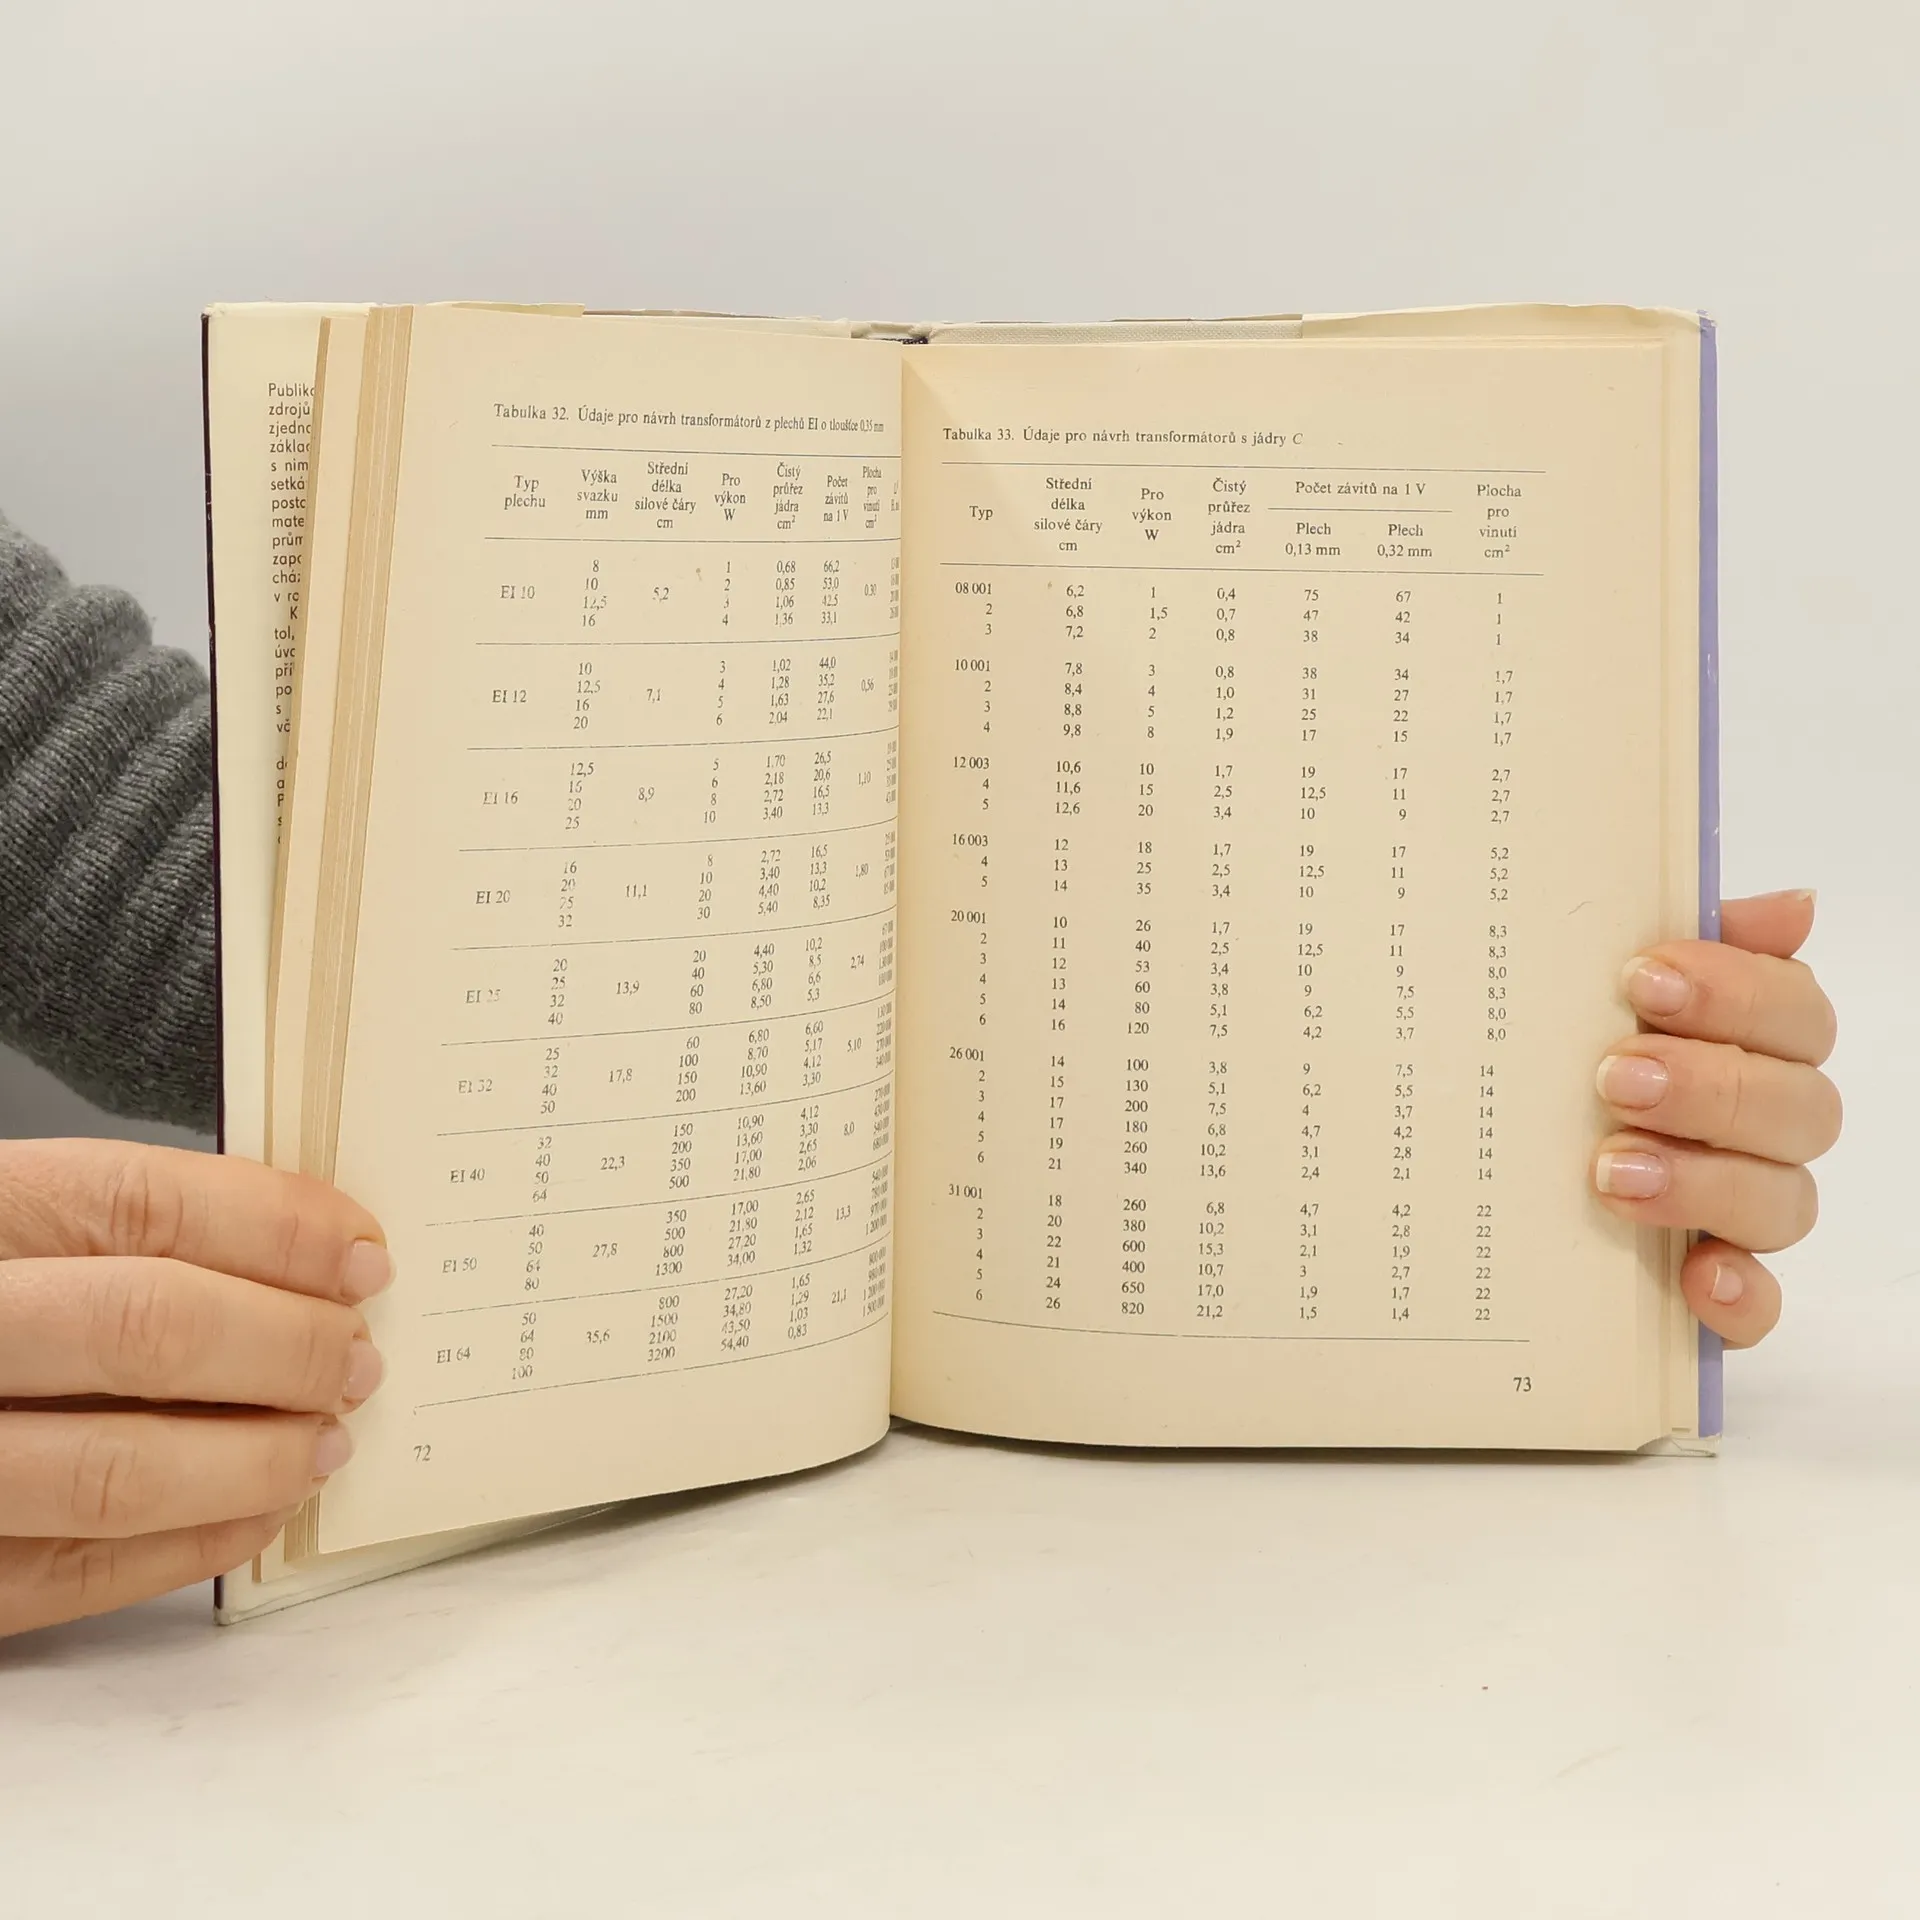 zdrojů
s nim
setká
mate
tol,
s
Tabulka 32. Údaje pro návrh transformátorů z plechů EI o tloušťce 0,35 mm
Typ plechu Výška svazku mm Střední délka silové čáry cm Pro výkon W Čistý průřez jádra cm² Počet závitů na 1 V Plocha pro vinutí cm²
8 1 0,68 66,2
10 2 0,85 53,0
EI 10 5,2 0,30
12,5 3 1,06 42,5
16 4 1,36 33,1
10 3 1,02 44,0
12,5 4 1,28 35,2
EI 12 7,1 0,56
16 5 1,63 27,6
20 6 2,04 22,1
12,5 5 1,70 26,5
16 6 2,18 20,6
EI 16 8,9 1,10
20 8 2,72 16,5
25 10 3,40 13,3
16 8 2,72 16,5
20 10 3,40 13,3
EI 20 11,1 1,80
25 20 4,40 10,2
32 30 5,40 8,35
20 20 4,40 10,2
25 40 5,30 8,5
EI 25 13,9 2,74
32 60 6,80 6,6
40 80 8,50 5,3
25 60 6,80 6,60
32 100 8,70 5,17
EI 32 17,8 5,10
40 150 10,90 4,12
50 200 13,60 3,30
32 150 10,90 4,12
40 200 13,60 3,30
EI 40 22,3 8,0
50 350 17,00 2,65
64 500 21,80 2,06
40 350 17,00 2,65
50 500 21,80 2,12
EI 50 27,8 13,3
64 800 27,20 1,65
80 1300 34,00 1,32
50 800 27,20 1,65
64 1500 34,80 1,29
EI 64 35,6 21,1
80 2100 43,50 1,03
100 3200 54,40 0,83
72
Tabulka 33. Údaje pro návrh transformátorů s jádry C
Typ Střední délka silové čáry cm Pro výkon W Čistý průřez jádra cm² Počet závitů na 1 V Plech 0,13 mm Plech 0,32 mm Plocha pro vinutí cm²
08 001 6,2 1 0,4 75 67 1
2 6,8 1,5 0,7 47 42 1
3 7,2 2 0,8 38 34 1
10 001 7,8 3 0,8 38 34 1,7
2 8,4 4 1,0 31 27 1,7
3 8,8 5 1,2 25 22 1,7
4 9,8 8 1,9 17 15 1,7
12 003 10,6 10 1,7 19 17 2,7
4 11,6 15 2,5 12,5 11 2,7
5 12,6 20 3,4 10 9 2,7
16 003 12 18 1,7 19 17 5,2
4 13 25 2,5 12,5 11 5,2
5 14 35 3,4 10 9 5,2
20 001 10 26 1,7 19 17 8,3
2 11 40 2,5 12,5 11 8,3
3 12 53 3,4 10 9 8,0
4 13 60 3,8 9 7,5 8,3
5 14 80 5,1 6,2 5,5 8,0
6 16 120 7,5 4,2 3,7 8,0
26 001 14 100 3,8 9 7,5 14
2 15 130 5,1 6,2 5,5 14
3 17 200 7,5 4 3,7 14
4 17 180 6,8 4,7 4,2 14
5 19 260 10,2 3,1 2,8 14
6 21 340 13,6 2,4 2,1 14
31 001 18 260 6,8 4,7 4,2 22
2 20 380 10,2 3,1 2,8 22
3 22 600 15,3 2,1 1,9 22
4 21 400 10,7 3 2,7 22
5 24 650 17,0 1,9 1,7 22
6 26 820 21,2 1,5 1,4 22
73